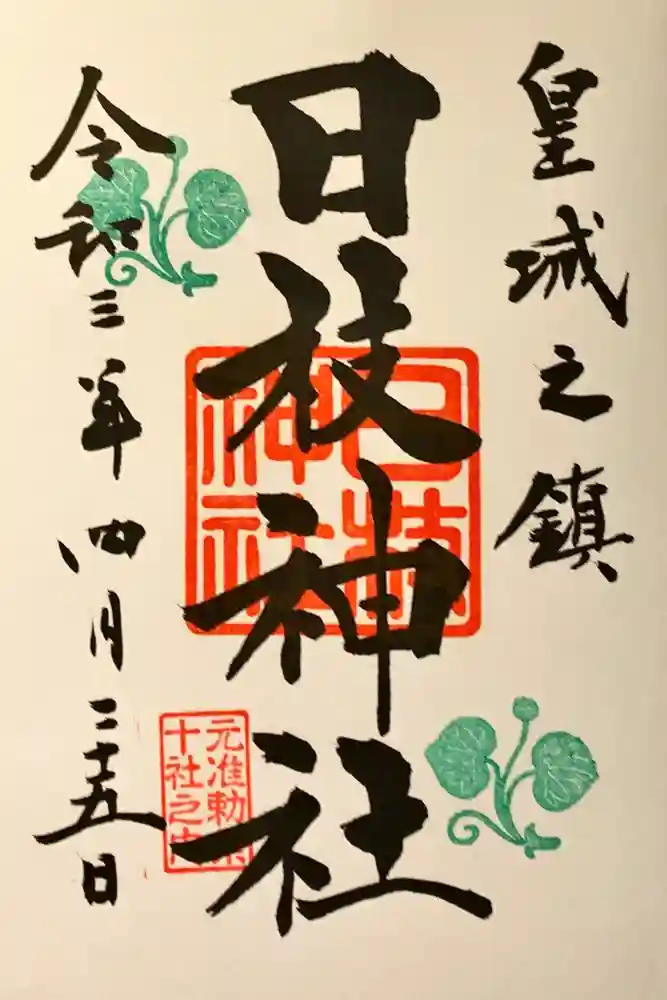 皇城之鎮
日枝神社
日枝
神社
元准勅祭
十社之内
令和三年四月二十五日